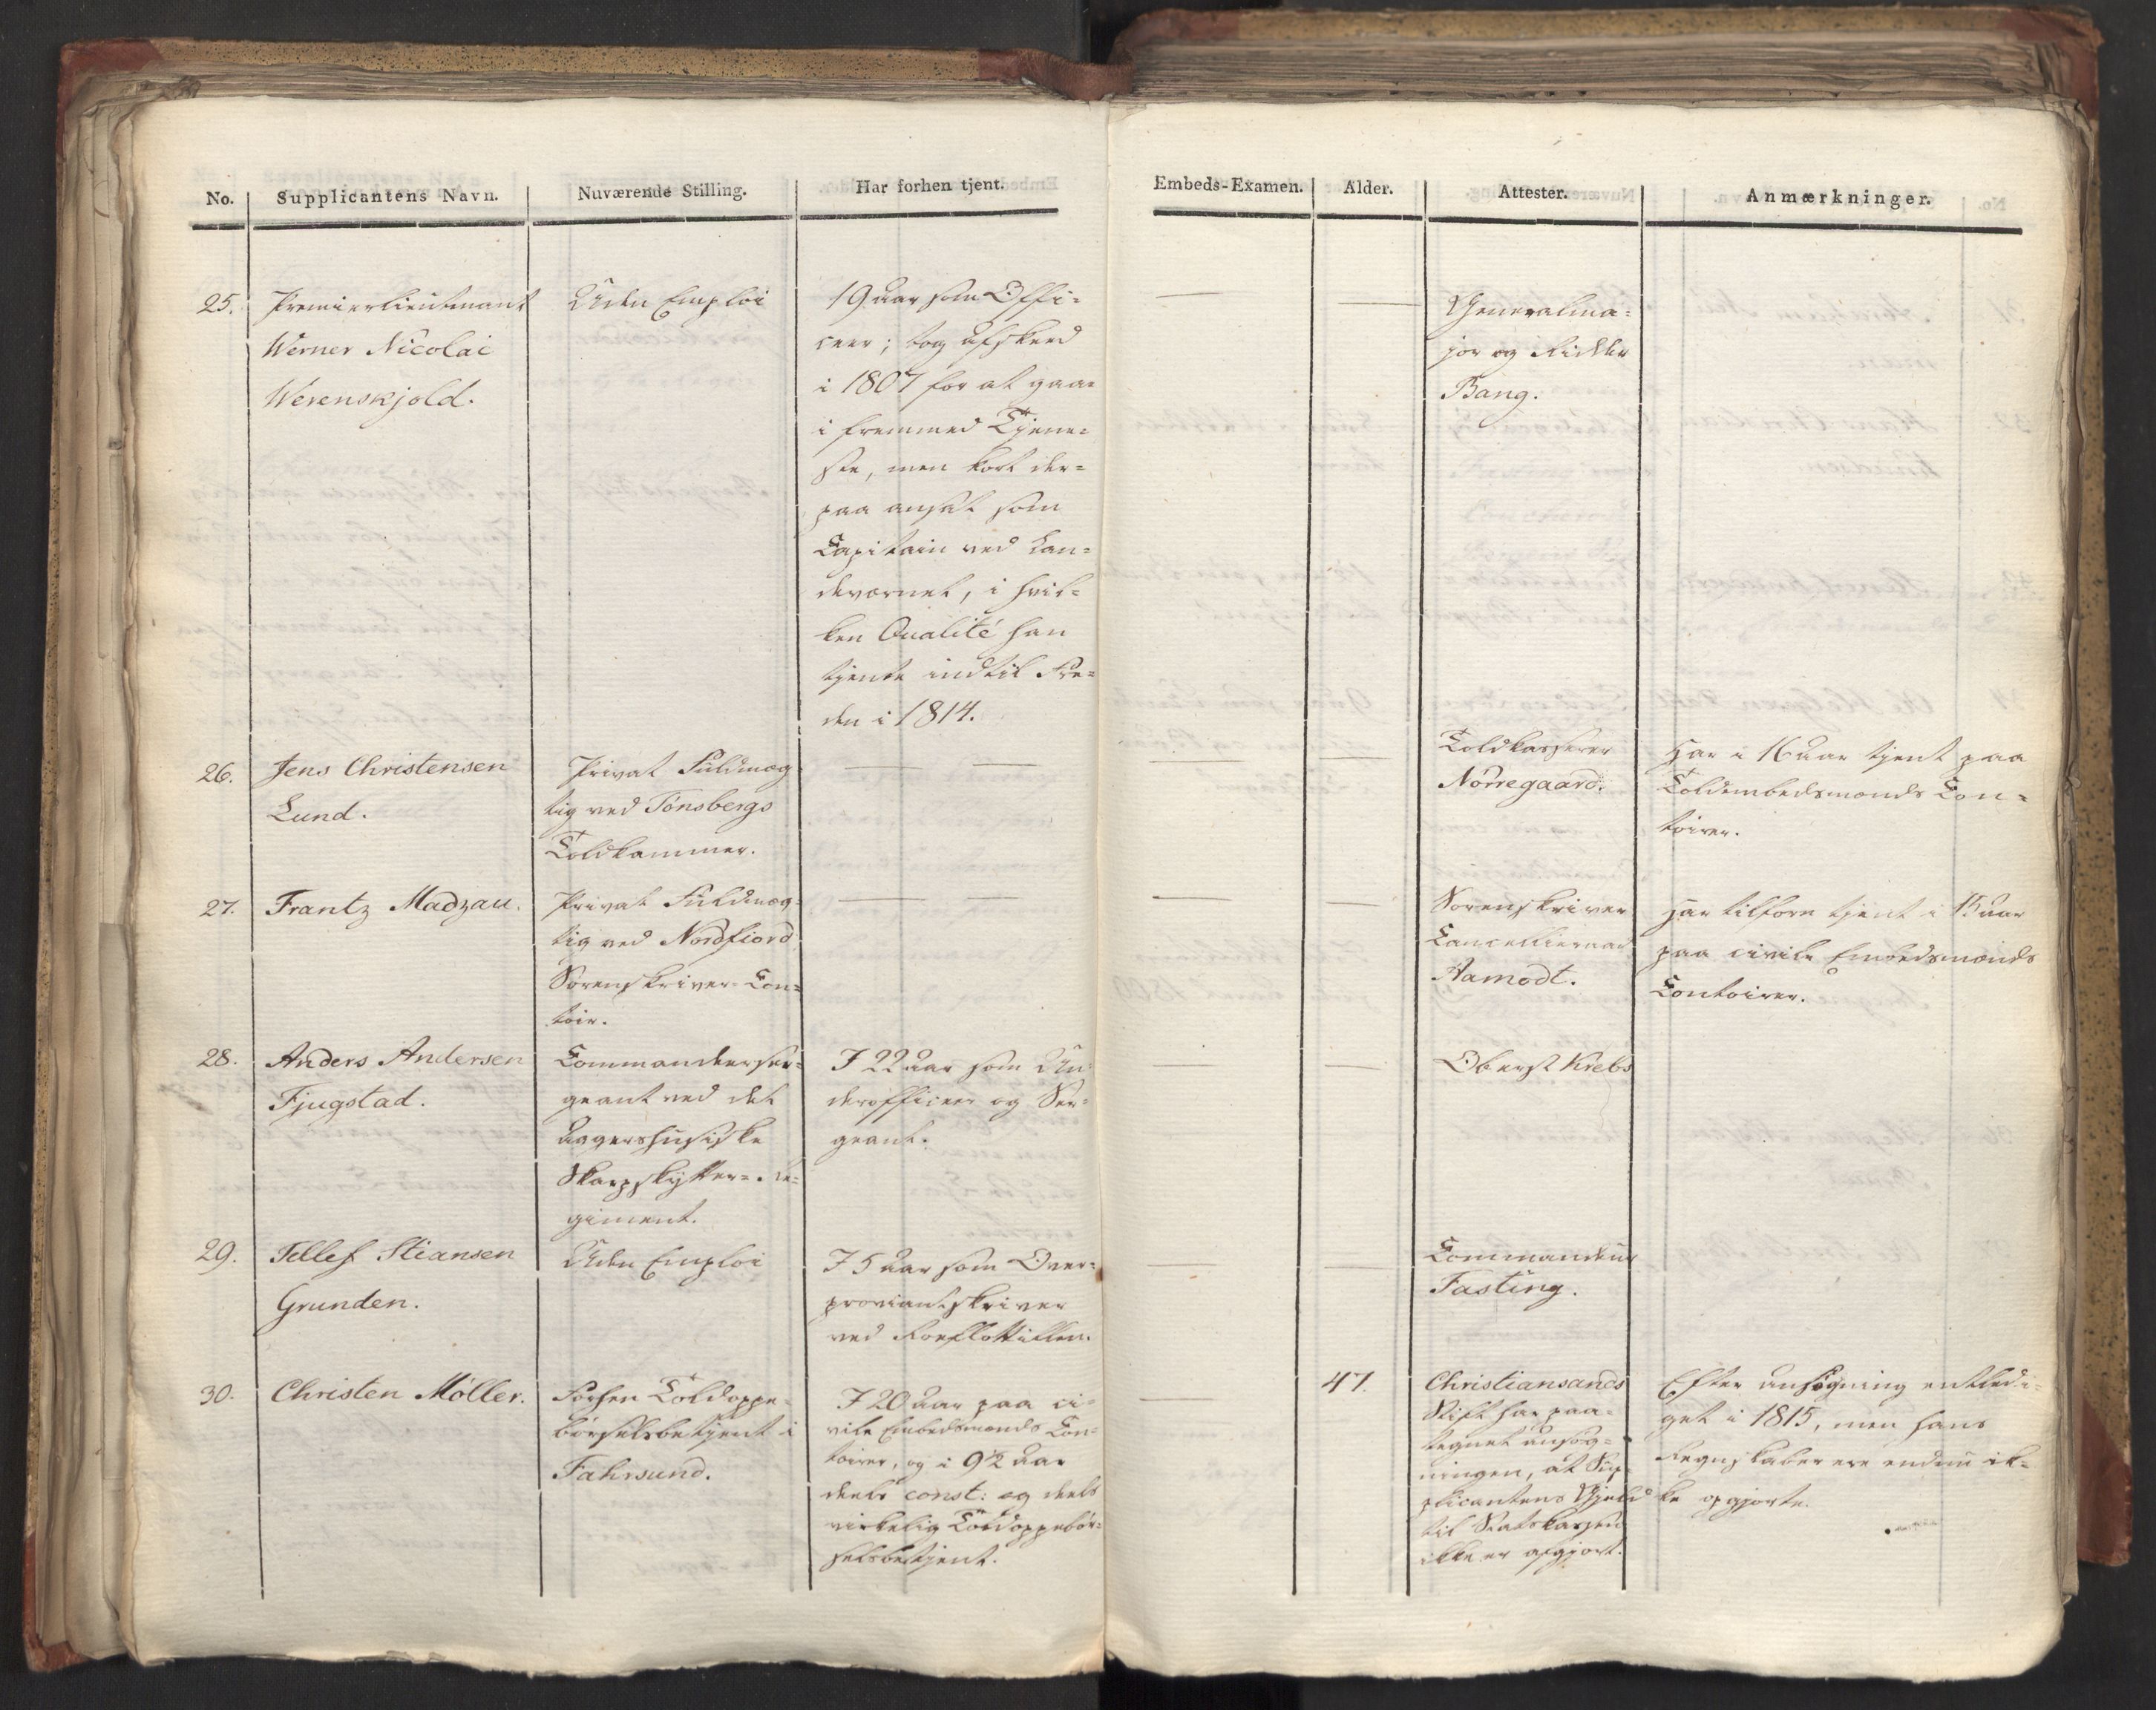 No. Supplicantens Navn. Nuværende Stilling. Har forhen tjent. Embeds-Examen. Alder. Attester. Anmærkninger.
25. Premierlieutenant
Werner Nicolai
Werenskjold.
Uden Emploi
19 Aar som Offi=
ceer; tog Afskeed
i 1807 for at gaae
i fremmed Tjene=
ste, men kort der=
paa ansat som
Capitain ved Lan=
deværnet, i hvil=
ken Qualité han
tjente indtil Fre=
den i 1814.
Generalma=
jor og Ridder
Bang.
26. Jens Christensen
Lund.
Privat Fuldmæg
tig ved Tönsbergs
Toldkammer.
Toldkasserer
Nörregaard.
Har i 16 Aar tjent paa
Toldembedsmænds Con=
toirer.
27. Frantz Madzau.
Privat Fuldmæg=
tig ved Nordfiord
Sorenskriver-Con=
toir.
Sorenskriver
Cancellieraad
Aamodt.
Har tilforn tjent i 15 Aar
paa civile Embedsmænds
Contoirer.
28. Anders Andersen
Fjugstad.
Commandeerser=
geant ved det
Aggershusiske
Skarpskytter-Re=
giment.
I 22 Aar som Un=
derofficeer og Ser=
geant.
Oberst Krebs
29. Tellef Stiansen
Grunden.
Uden Emploi
I 5 Aar som Over=
proviantskriver
ved Roeflottillen.
Commandeur
Fasting.
30. Christen Möller.
Forhen Toldoppe=
börselsbetjent i
Fahrsund.
I 20 Aar paa ci=
vile Embedsmænds Con=
toirer, og i 9 1/2 Aar
deels const: og deels
virkelig Toldoppebör=
selsbetjent.
47.
Christiansands
Stift har paa=
tegnet Ansög=
ningen, at Sup=
plicantens Gjeld
til Statskassen
ikke er afgjort.
Efter Ansögning entledi=
get i 1815, men hans
Regnskaber ere endnu ik=
ke opgjorte.